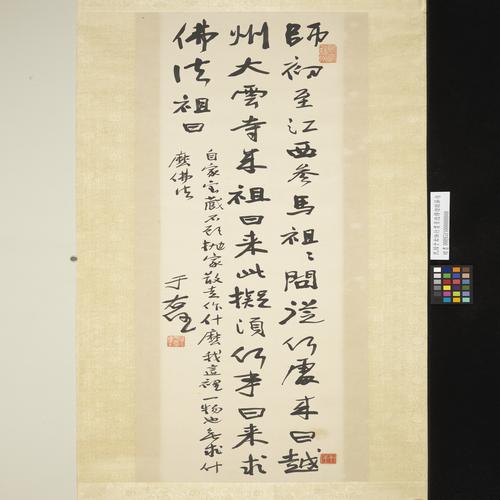 師初至江西參馬祖祖問從何處來曰越
州大雲寺來祖曰來此擬須何事曰來求
佛法祖曰
自家寶藏不顧拋家散走作什麼我這裡一物也無求什
麼佛法
于右任